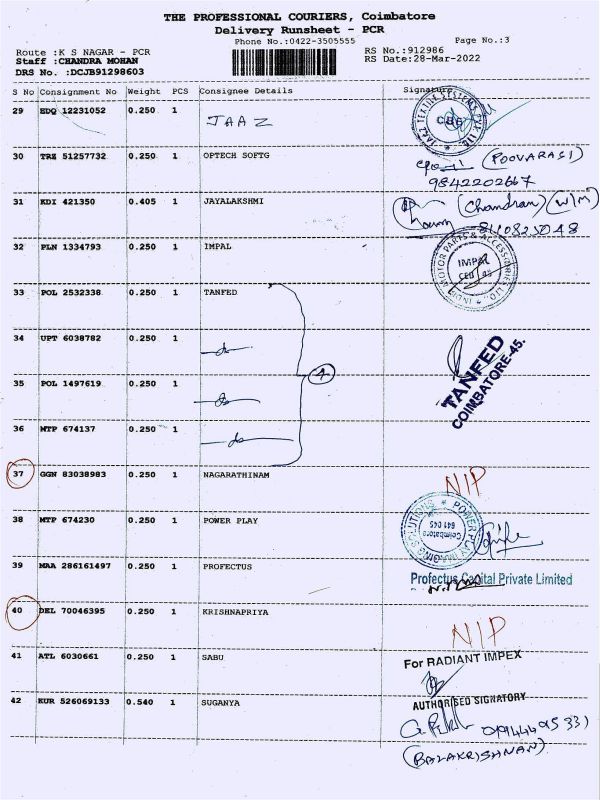 THE PROFESSIONAL COURIERS, Coimbatore
Delivery Runsheet - PCR
Phone No.:0422-3505555 Page No.:3
Route :K S NAGAR - PCR RS No.:912986
Staff :CHANDRA MOHAN RS Date:28-Mar-2022
DRS No. :DCJB91298603
S No Consignment No Weight PCS Consignee Details Signature
29 EDQ 12231052 0.250 1 JAAZ
30 TRZ 51257732 0.250 1 OPTECH SOFTG (POOVARASI)
9842202667
31 KDI 421350 0.405 1 JAYALAKSHMI (Chandran) (W/M)
32 PLN 1334793 0.250 1 IMPAL IMPAL
33 POL 2532338 0.250 1 TANFED
34 UPT 6038782 0.250 1 -do-
TANFED
COIMBATORE-45.
35 POL 1497619 0.250 1 -do- 4
36 MTP 674137 0.250 1 -do-
37 GGN 83038983 0.250 1 NAGARATHINAM N/P
38 MTP 674230 0.250 1 POWER PLAY
POWER PLAY IMAGING SOLUTIONS
Coimbatore
641 045
39 MAA 286161497 0.250 1 PROFECTUS Profectus Capital Private Limited
40 DEL 70046395 0.250 1 KRISHNAPRIYA N/P
41 ATL 6030661 0.250 1 SABU For RADIANT IMPEX
AUTHORISED SIGNATORY
42 KUR 526069133 0.540 1 SUGANYA
(BALAKRISHNAN)